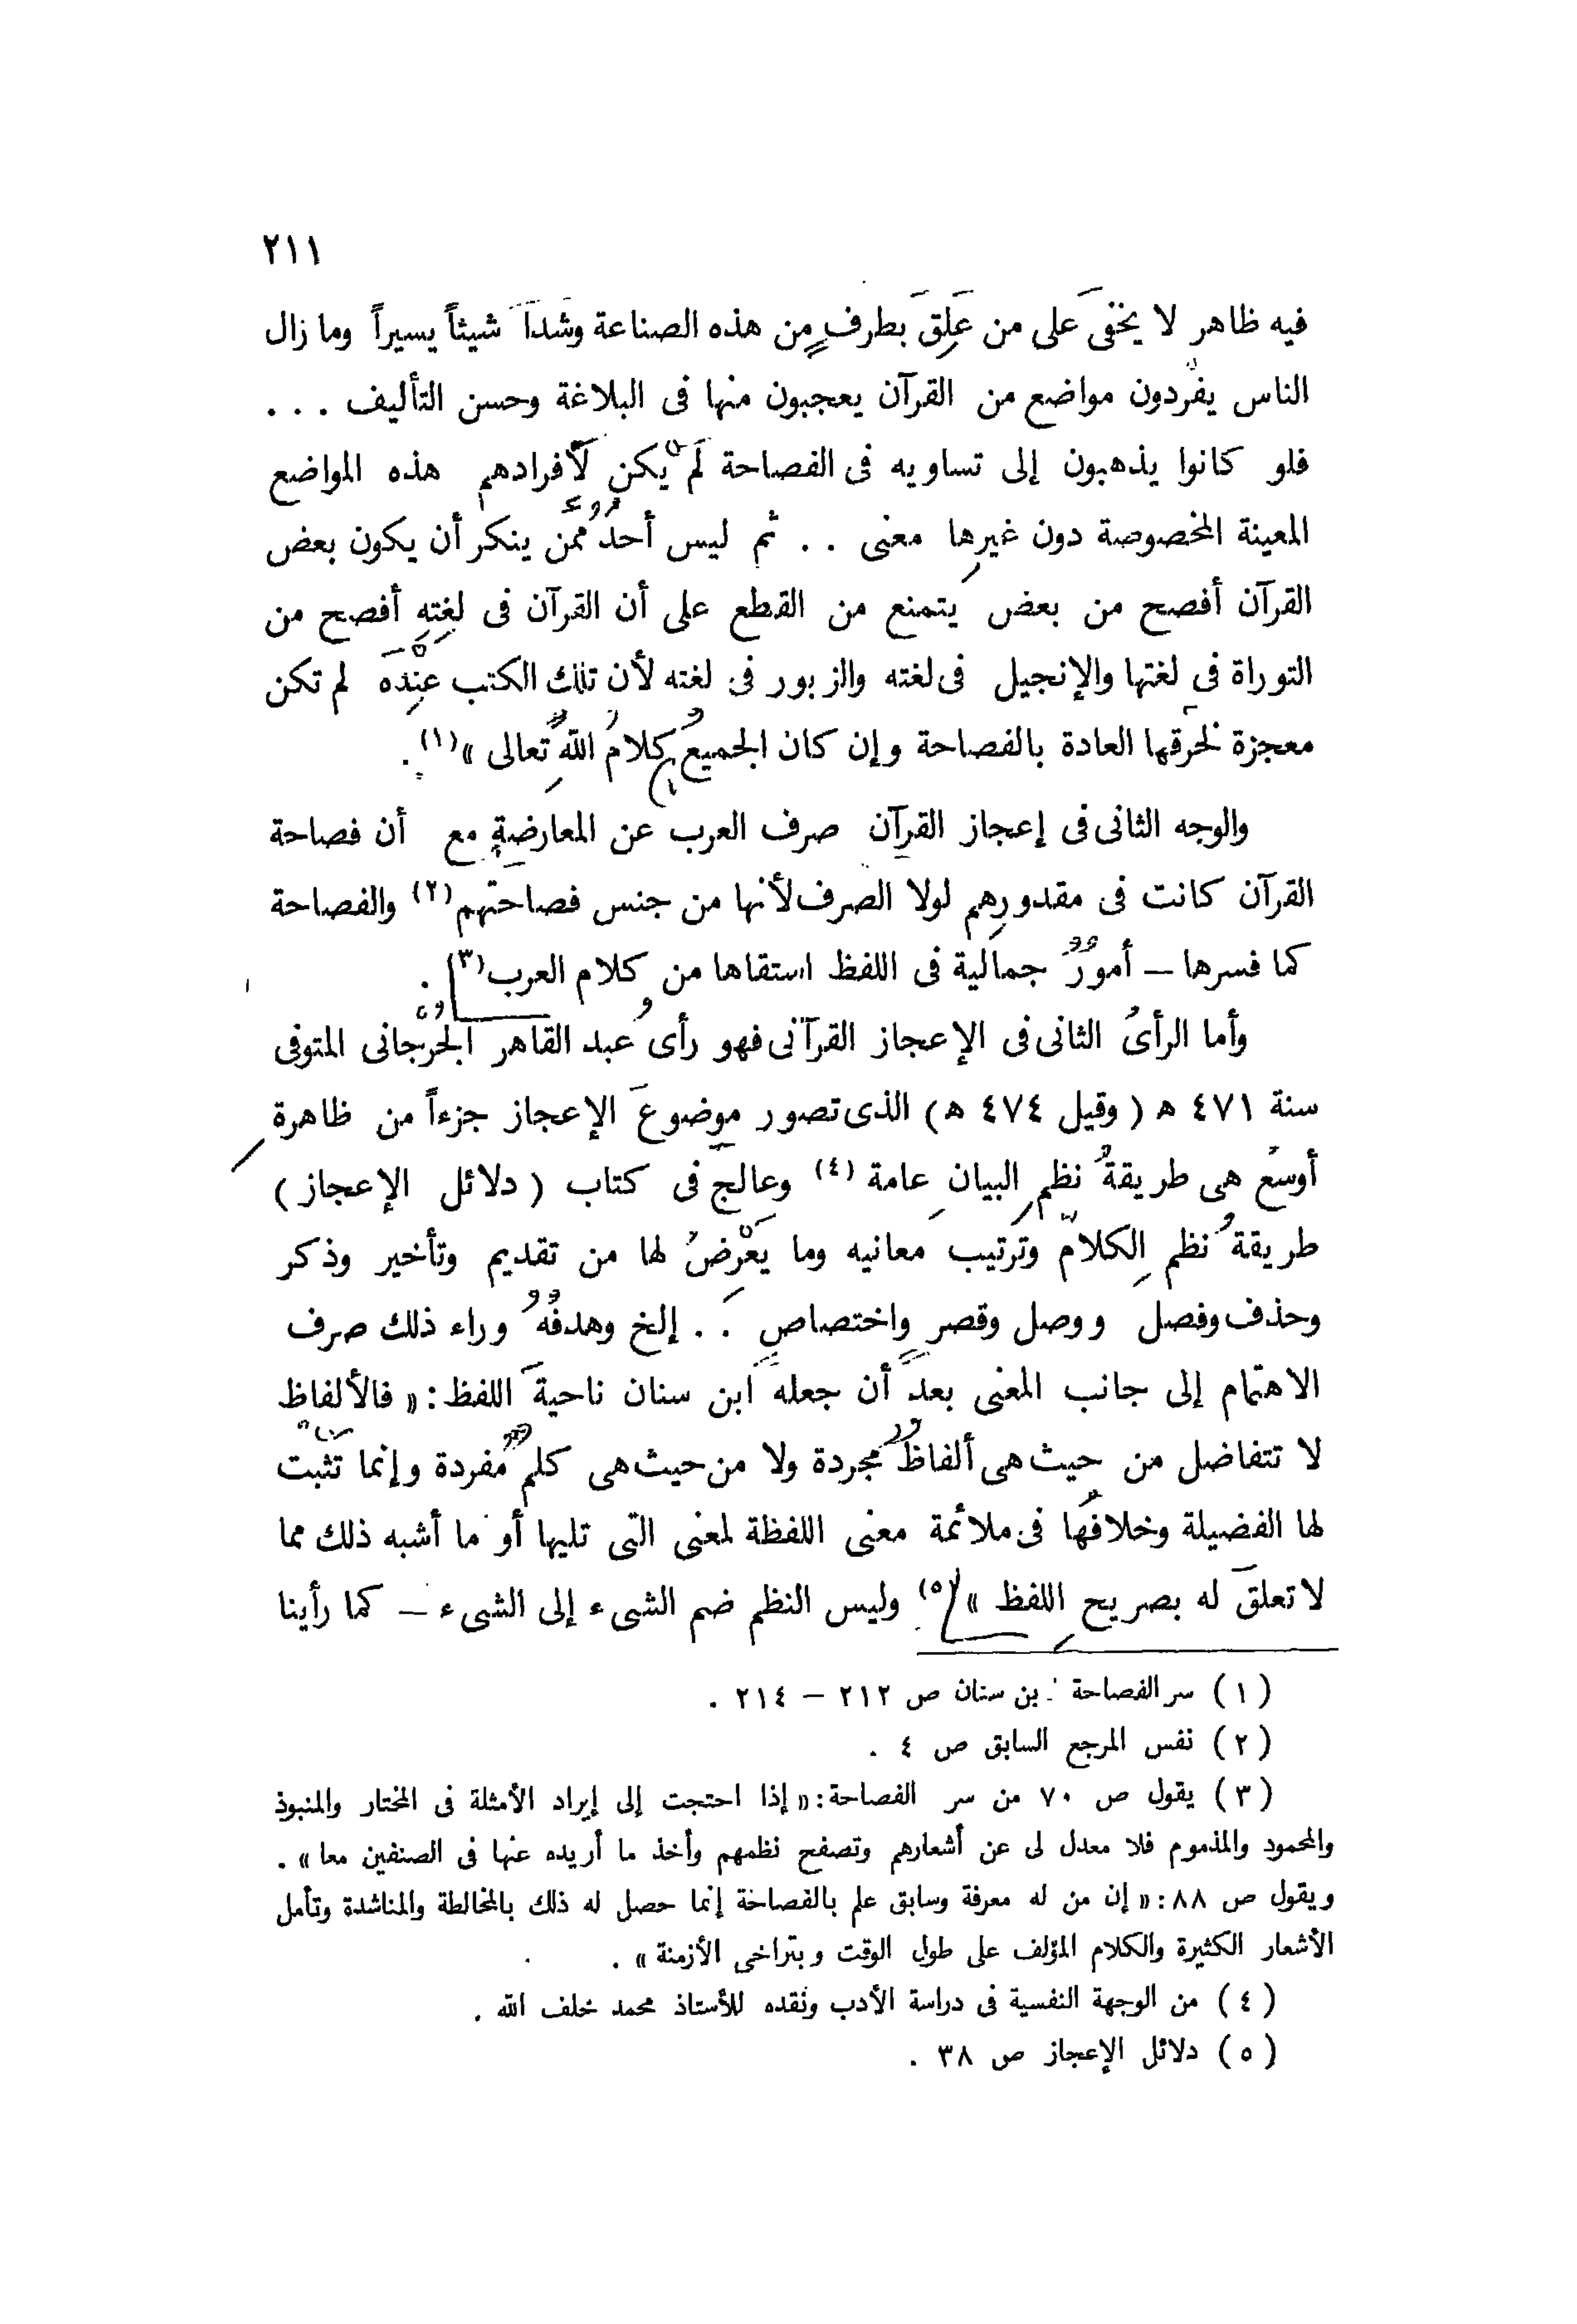 ٢١١
فيه ظاهر لا يخفى على من عَلِقَ بطرفٍ من هذه الصناعة وشدا شيئاً يسيراً وما زال
الناس يفردون مواضع من القرآن يعجبون منها فى البلاغة وحسن التأليف . . .
فلو كانوا يذهبون إلى تساويه فى الفصاحة لَمْ يكن لأفرادهم هذه المواضع
المعينة المخصوصة دون غيرِها معنى . . ثم ليس أحدٌ ممن ينكر أن يكون بعض
القرآن أفصح من بعض يتمنع من القطع على أن القرآن فى لغتِهِ أفصح من
التوراة فى لغتها والإنجيل فى لغته والزبور فى لغته لأن تلك الكتب عِنْدَه لم تكن
معجزة لخرقها العادة بالفصاحة وإن كان الجميعُ كلامُ اللهِ تعالى »(١) .
والوجه الثانى فى إعجاز القرآن صرف العرب عن المعارضةِ مع أن فصاحة
القرآن كانت فى مقدورِهم لولا الصرف لأنها من جنس فصاحتهم(٢) والفصاحة
كما فسرها – أمورٌ جمالية فى اللفظ استقاها من كلام العرب(٣) .
وأما الرأىُ الثانى فى الإعجاز القرآنى فهو رأىُ عبد القاهر الجُرْجانى المتوفى
سنة ٤٧١ ه ( وقيل ٤٧٤ ه ) الذى تصور موضوعَ الإعجاز جزءاً من ظاهرة
أوسعَ هى طريقةُ نظمِ البيانِ عامة (٤) وعالجَ فى كتاب ( دلائل الإعجاز )
طريقةُ نظم الكلامِ وترتيب معانيه وما يَعْرِضُ لها من تقديم وتأخير وذكر
وحذف وفصل ووصل وقصرٍ واختصاصٍ . . إلخ وهدفُهُ وراء ذلك صرف
الاهتمام إلى جانب المعنى بعدَ أن جعله ابن سنان ناحيةَ اللفظ : « فالألفاظ
لا تتفاضل من حيث هى ألفاظٌ مجردة ولا من حيث هى كلمٌ مفردة وإنما تَثْبُت
لها الفضيلة وخلافُها فى ملائمة معنى اللفظة لمعنى التى تليها أو ما أشبه ذلك مما
لا تعلقَ له بصريحِ اللفظ »(٥) وليس النظم ضم الشىء إلى الشىء – كما رأينا
( ١ ) سر الفصاحة . بن سنان ص ٢١٢ – ٢١٤ .
( ٢ ) نفس المرجع السابق ص ٤ .
( ٣ ) يقول ص ٧٠ من سر الفصاحة : « إذا احتجت إلى إيراد الأمثلة فى المختار والمنبوذ
والمحمود والمذموم فلا معدل لى عن أشعارهم وتصفح نظمهم وأخذ ما أريده عنها فى الصنفين معا » .
ويقول ص ٨٨ : « إن من له معرفة وسابق علم بالفصاحة إنما حصل له ذلك بالمخالطة والمناشدة وتأمل
الأشعار الكثيرة والكلام المؤلف على طول الوقت وبتراخى الأزمنة » .
( ٤ ) من الوجهة النفسية فى دراسة الأدب ونقده للأستاذ محمد خلف الله .
( ٥ ) دلائل الإعجاز ص ٣٨ .